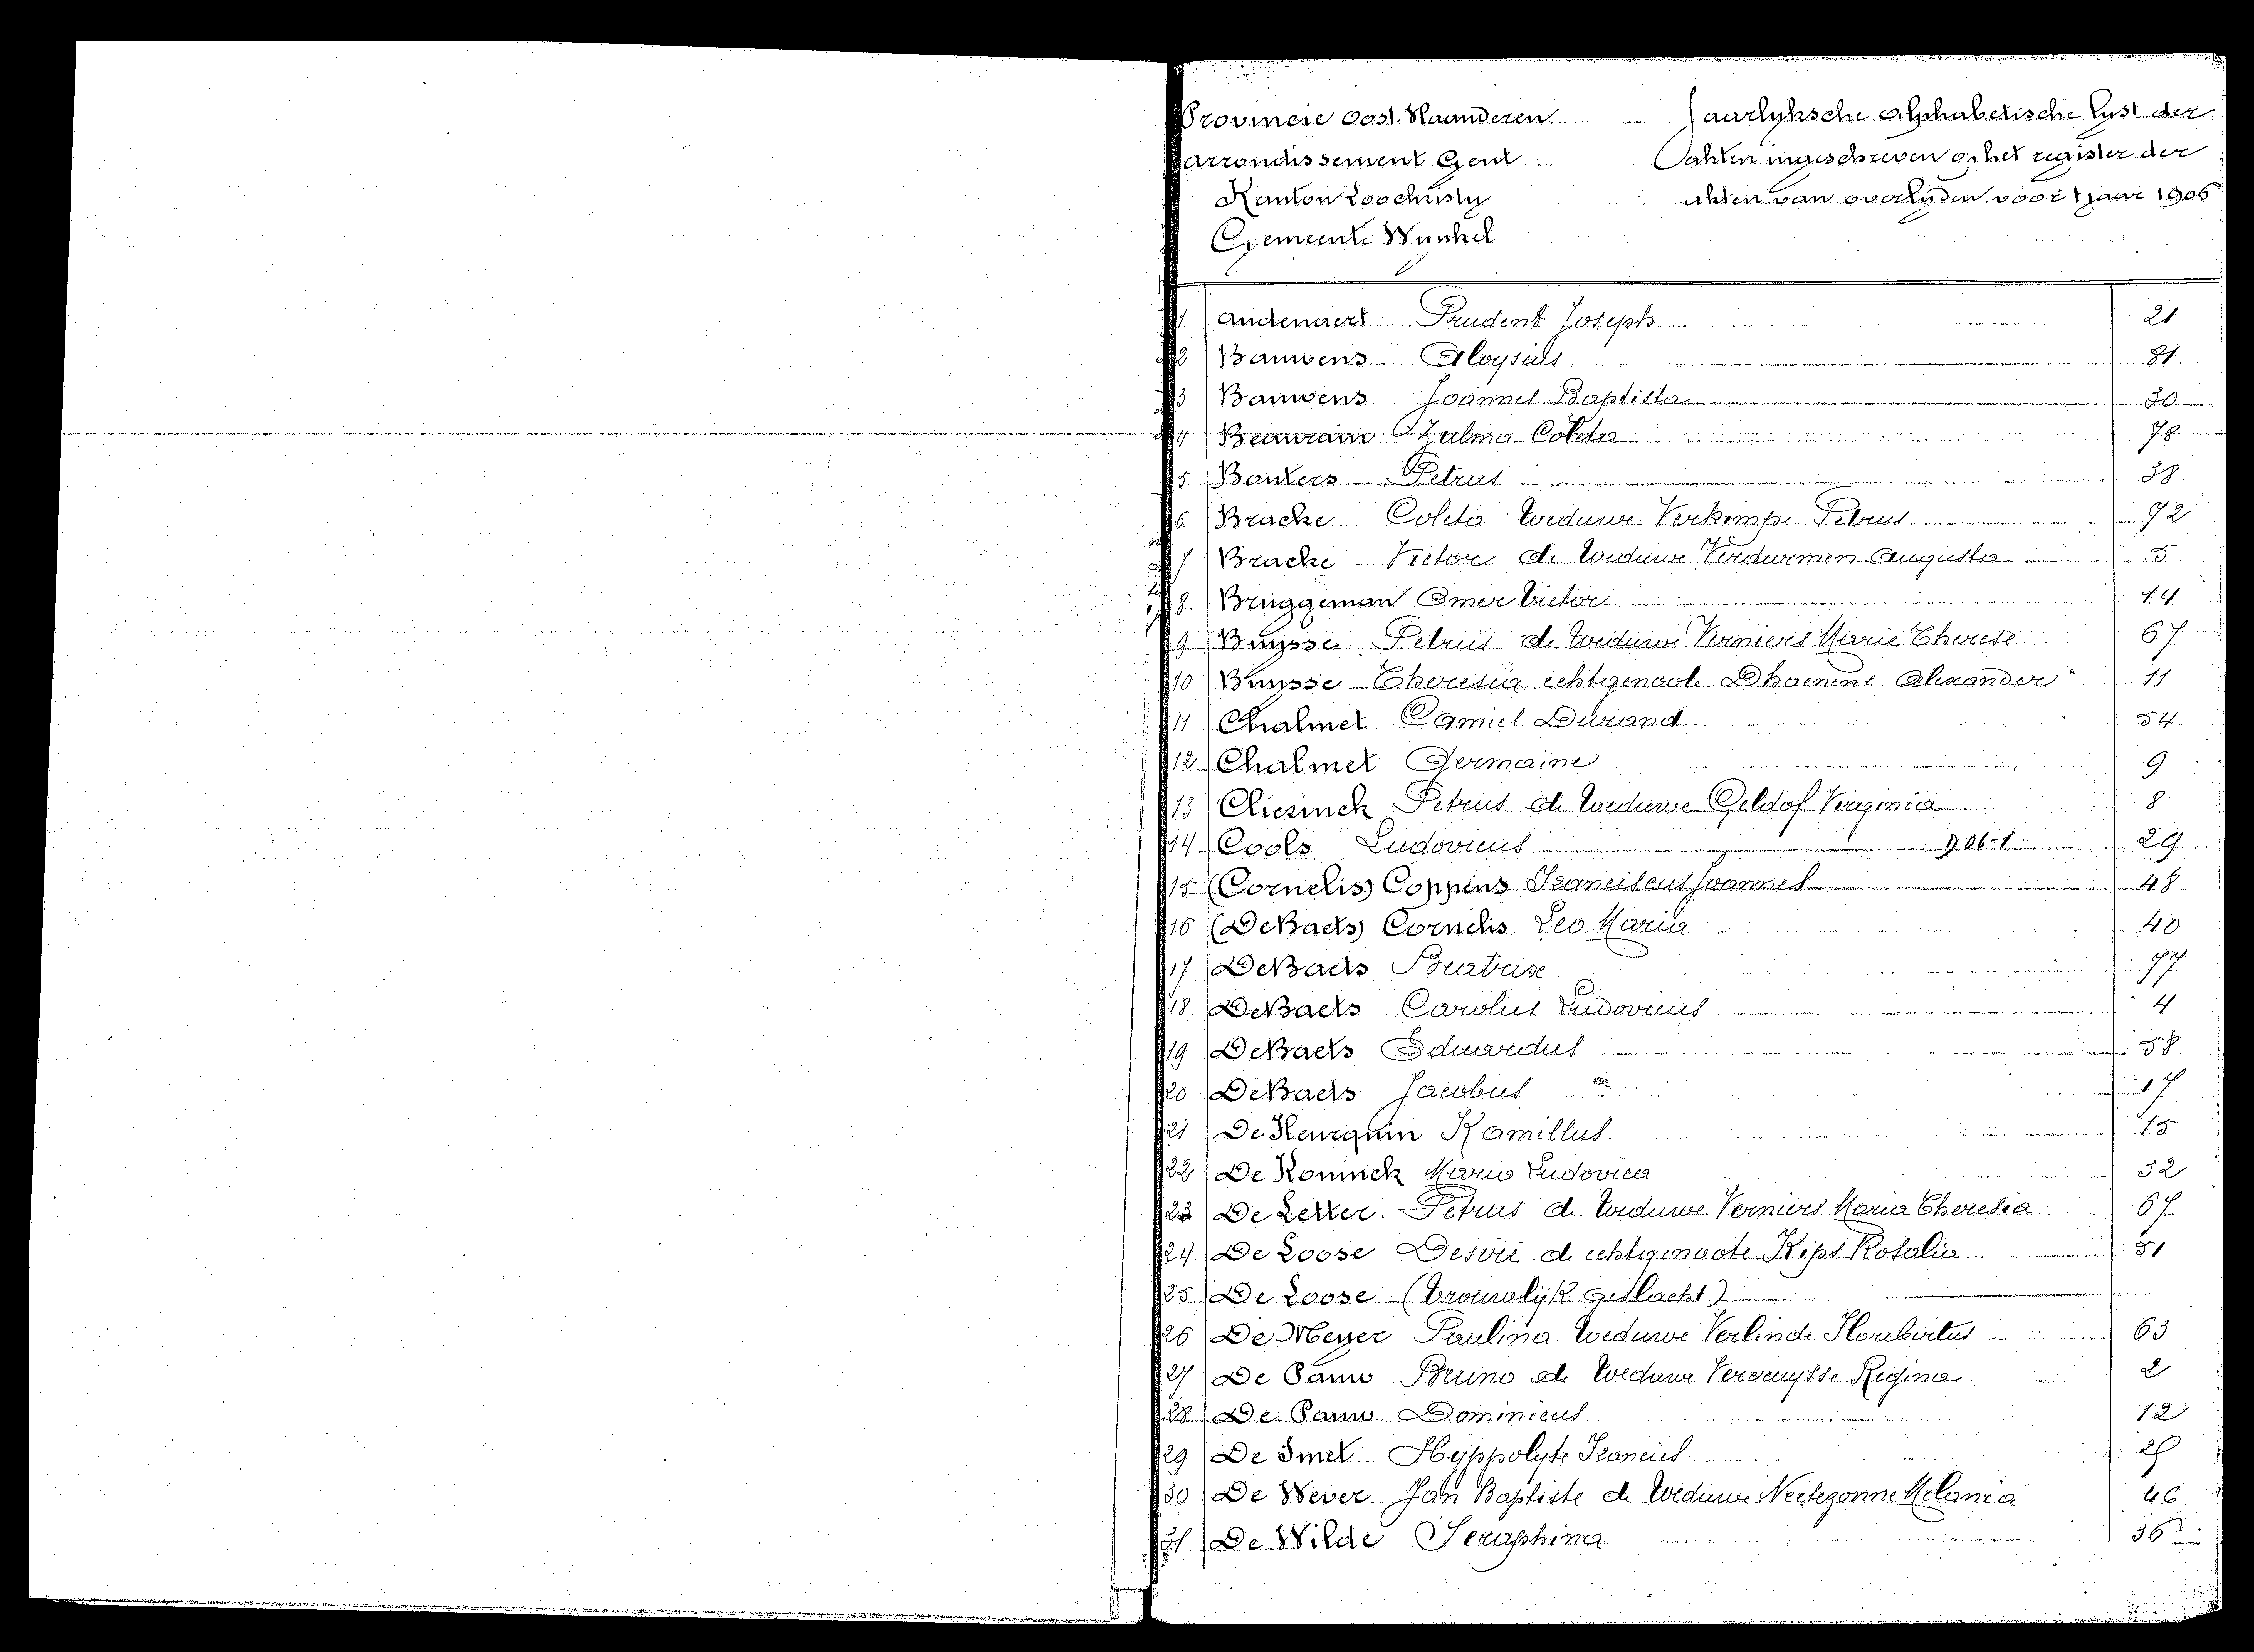 Provincie Oost Vlaanderen
Arrondissement Gent
Kanton Loochristy
Gemeente Wynkel
Jaarlyksche Alphabetische Lyst der
akten ingeschreven op het register der
akten van overlyden voor 't jaar 1906
1 Audenaert Prudent Joseph 21
2 Bauwens Aloysius 81
3 Bauwens Joannes Baptista 30
4 Beaurain Zulma Coleta 78
5 Bonkers Petrus 38
6 Bracke Coleta weduwe Verkimpe Petrus 72
7 Bracke Victor de weduwe Verdurmen Augusta 5
8 Bruggeman Omer Victor 14
9 Buysse Petrus de weduwe Verniers Marie Therese 67
10 Buysse Theresia echtgenoote Dhaenens Alexander 11
11 Chalmet Camiel Durand 54
12 Chalmet Germaine 9
13 Cliesinck Petrus de weduwe Geldof Virginia 8
14 Cools Ludovicus 906-1 29
15 (Cornelis) Coppens Franciscus Joannes 48
16 (De Baets) Cornelis Leo Maria 40
17 De Baets Beatrise 77
18 De Baets Carolus Ludovicus 4
19 De Baets Eduardus 58
20 De Baets Jacobus 17
21 De Keurquin Kamillus 15
22 De Koninck Maria Ludovica 32
23 De Letter Petrus de weduwe Verniers Maria Theresia 67
24 De Loose Desiré de echtgenoote Kips Rosalia 51
25 De Loose (Vrouwlijk geslacht)
26 De Meyer Paulina weduwe Verlinde Floribertus 63
27 De Pauw Bruno de weduwe Vercruysse Regina 2
28 De Pauw Dominicus 12
29 De Smet Hyppolyte Francies
30 De Wever Jan Baptiste de weduwe Neetezonne Melania 46
31 De Wilde Seraphina 36